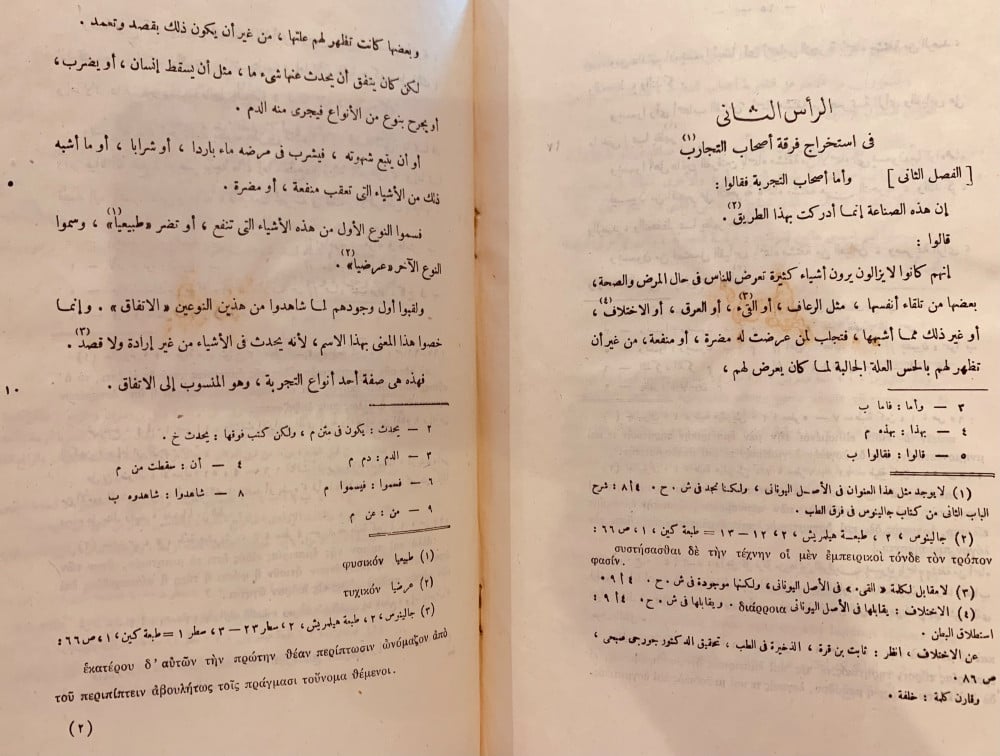 الرأس الثانى
فى استخراج فرقة أصحاب التجارب(١)
[ الفصل الثانى ] وأما أصحاب التجربة فقالوا :
إن هذه الصناعة إنما أدركت بهذا الطريق(٢).
قالوا :
إنهم كانوا لا يزالون يرون أشياء كثيرة تعرض للناس فى حال المرض والصحة،
بعضها من تلقاء أنفسها ، مثل الرعاف ، أو القىء(٣) ، أو العرق ، أو الاختلاف(٤) ،
أو غير ذلك مما أشبهها ، فتجلب لمن عرضت له مضرة ، أو منفعة، من غير أن
تظهر لهم بالحس العلة الجالبة لما كان يعرض لهم ،
٣ — وأما : فاما ب
٤ — بهذا : بهذه م
٥ — قالوا : فقالوا ب
(١) لا يوجد مثل هذا العنوان فى الأصل اليونانى ، ولكننا نجد فى ش . ح . ٤ أ ٨ : شرح
الباب الثانى من كتاب جالينوس فى فرق الطب .
(٢) جالينوس ، ٢ ، طبعة هيلمريش ، ٢ ، ١٢ – ١٣ = طبعة كين ، ١ ، ص ٦٦ :
συστήσασθαι δὲ τὴν τέχνην οἱ μὲν ἐμπειρικοὶ τόνδε τὸν τρόπον
φασίν.
(٣) لا مقابل لكلمة « القىء » فى الأصل اليونانى ، ولكنها موجودة فى ش . ح . ٤ أ ٩ .
(٤) الاختلاف : يقابلها فى الأصل اليونانى διάρροια . ويقابلها فى ش . ح . ٤ أ ٩ :
استطلاق البطن .
عن الاختلاف ، انظر : ثابت بن قرة ، الذخيرة فى الطب ، تحقيق الدكتور جورجى صبحى ،
ص ٨٦ .
وقارن كلمة : خلفة .
وبعضها كانت تظهر لهم علتها ، من غير أن يكون ذلك بقصد وتعمد .
لكن كان يتفق أن يحدث عنها شىء ما ، مثل أن يسقط إنسان ، أو يضرب ،
أو يجرح بنوع من الأنواع فيجرى منه الدم .
أو أن يتبع شهوته ، فيشرب فى مرضه ماء باردا ، أو شرابا ، أو ما أشبه
ذلك من الأشياء التى تعقب منفعة ، أو مضرة .
فسموا النوع الأول من هذه الأشياء التى تنفع ، أو تضر «طبيعيا»(١) ، وسموا
النوع الآخر «عرضيا»(٢) .
ولقبوا أول وجودهم لما شاهدوا من هذين النوعين « الاتفاق » . وإنما
خصوا هذا المعنى بهذا الاسم ، لأنه يحدث فى الأشياء من غير إرادة ولا قصد(٣) .
١٠ فهذه هى صفة أحد أنواع التجربة ، وهو المنسوب إلى الاتفاق .
٢ — يحدث : يكون فى متن م ، ولكن كتب فوقها : يحدث خ .
٣ — الدم : دم م ٤ — أن : سقطت من م
٦ — فسموا : فيسموا م ٨ — شاهدوا : شاهدوه ب
٩ — من : عن م
(١) طبيعيا φυσικόν
(٢) عرضيا τυχικόν
(٣) جالينوس ، ٢ ، طبعة هيلمريش ، ٢ ، سطر ٢٣ – ٣ ، سطر ١ = طبعة كين ، ١ ، ص ٦٦ :
ἑκατέρου δ' αὐτῶν τὴν πρώτην θέαν περίπτωσιν ὠνόμαζον ἀπὸ
τοῦ περιπίπτειν ἀβουλήτως τοῖς πράγμασι τοὔνομα θέμενοι.
(٢)